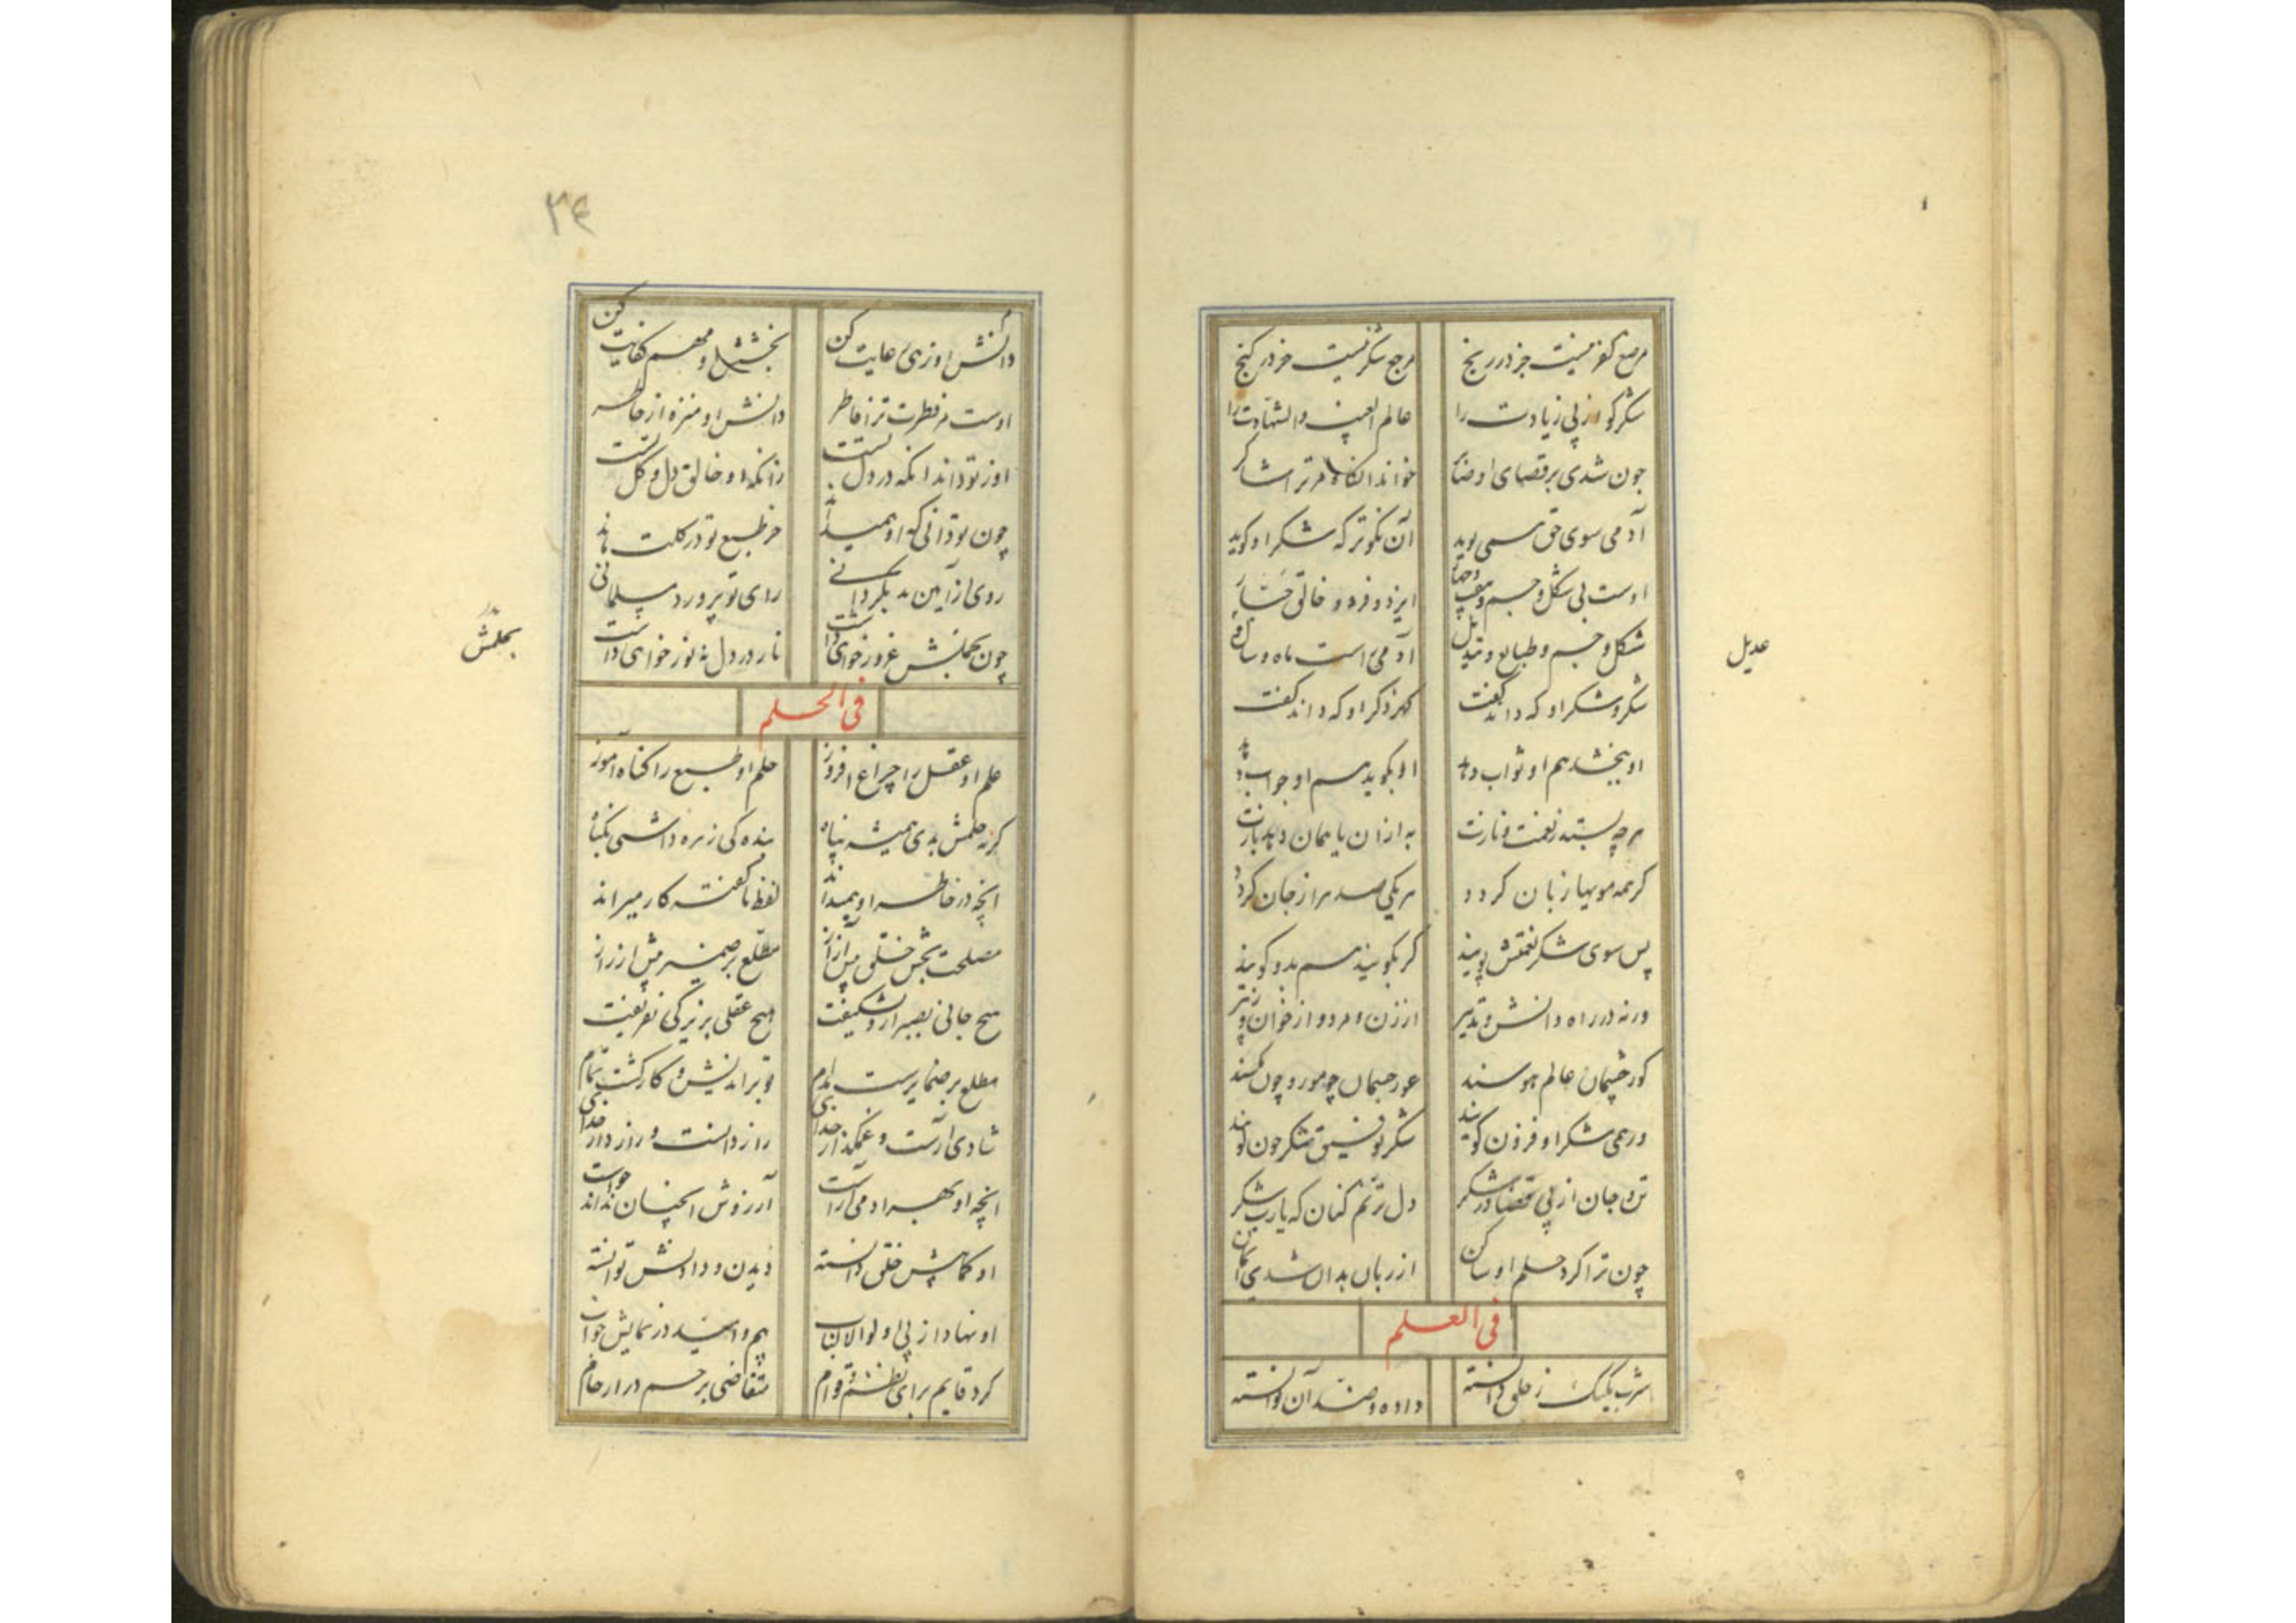 مرجع کفر نیست جز در رنج
مرجع شکر نیست جز در گنج
شکر گو از پی زیادت را
عالم الغیب والشهادت را
چون شدی بر قضای او صابر
خواند آنگاه مر ترا شاکر
آدمی سوی حق همی پوید
آن نکوتر که شکر او گوید
اوست بی شکل و جسم و
ایزد فرد و خالق جبار
شکل و جسم و طبایع و تبدیل
آدمی است ماه و سال
شکر و شکر او که داند گفت
گهر ذکر او که داند سفت
او ببخشد هم او ثواب دهد
او بگوید هم او جواب دهد
هرچه بستد ز نعمت و نازت
به از آن یا همان دهد بازت
گر همه مویها زبان گردد
هر یکی صد هزار جان گردد
پس سوی شکر نعمتش پویند
گر بگویند هم بدو گویند
ورنه در راه دانش و تدبیر
از زن و مرد و از جوان و پیر
کور چشمان عالم هوسند
عور جسمان چو مور و چون مگسند
ور همی شکر او فزون گویند
شکر توفیق شکر چون گویند
تن و جان از پی قضا در شکر
دل ترنم کنان که یا رب شکر
چون ترا کرد حلم او ساکن
از زبان بدان شدی ایمن
فی العلم
شرب یکیک ز خلق دانسته
داده و ضد آن توانسته
عدیل
۳۴
دانش او رهی رعایت کن
بخشش او مهم کفایت کن
اوست مر فطرت ترا فاطر
دانش او منزه از خاطر
او ز تو داند آنکه در دل تست
زانکه او خالق دل و گل تست
چون تو دانی که او همی داند
خر طبع تو در گلت ماند
روی از آیین بد بگردانی
رای تو پرورد مسلمانی
چون بحلمش غرور خواهی داشت
نار در دل نه نور خواهی داشت
بحلمش
فی الحلم
علم او عقل را چراغ افروز
حلم او طبع را گناه آموز
گرنه حلمش بدی همیشه پناه
بنده کی زهره داشتی بگناه
انچه در خاطر او همی داند
لفظ ناگفته کار میراند
مصلحت بخش خلق پیش از آز
مطلع بر ضمیر پیش از راز
هیچ جانی بصبر ازو نشکیفت
هیچ عقلی بزیرکی نفریفت
مطلع بر ضمایرست مدام
تو براندیش و کار گشت تمام
شادی آرست و غمگذار خدای
راز دانست و رازدار خدای
انچه او بهر آدمی آراست
آرزوش آنچنان نداند خواست
او کمابیش خلق دانسته
دیدن و دادنش توانسته
او نهاد از پی اولو الالباب
بیم و امید در نمایش خواب
کرد قایم برای نظم و قوام
متقاضی برحم در ارحام